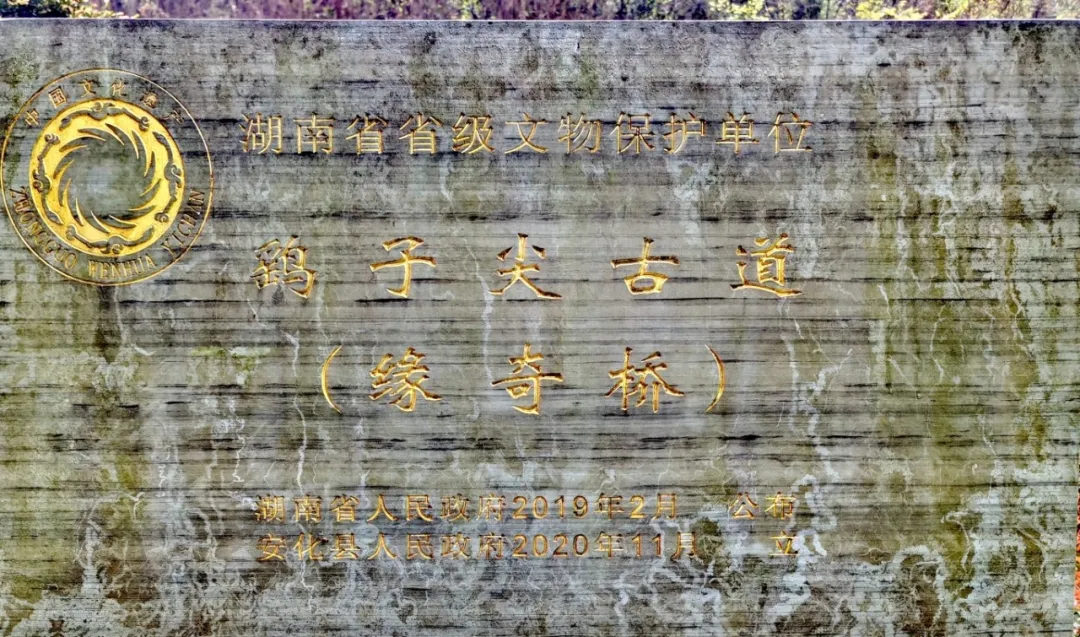 中国文化遗产
ZHONGGUO WENHUA YICHAN
湖南省省级文物保护单位
鹞子尖古道
（缘奇桥）
湖南省人民政府2019年2月 公布
安化县人民政府2020年11月 立